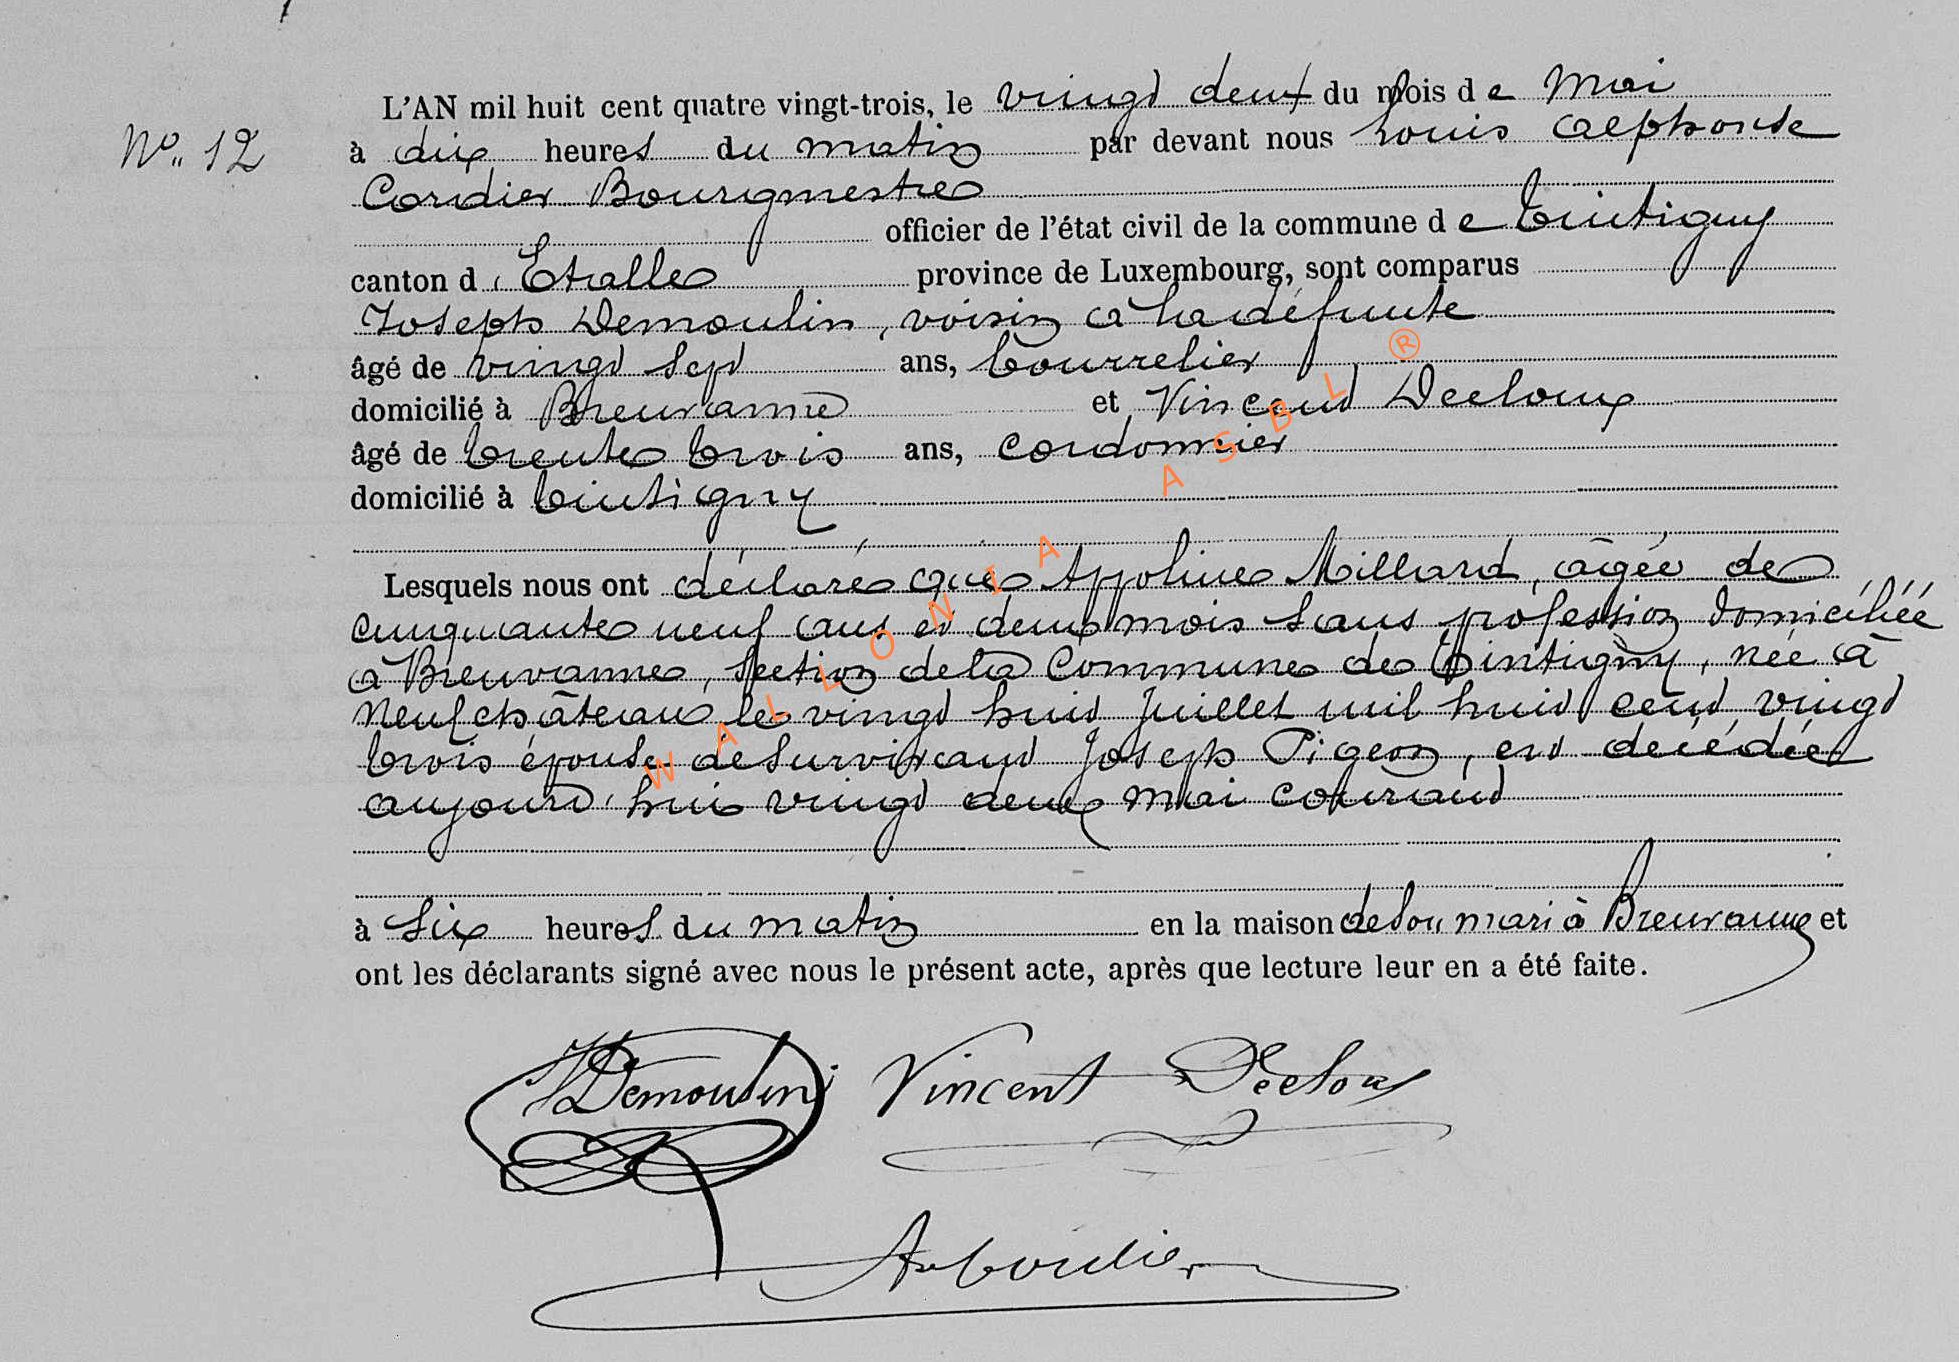 L'AN mil huit cent quatre vingt-trois, le vingt deux du mois de Mai
N° 12
à dix heures du matin par devant nous Louis Alphonse
Cordier Bourgmestre
officier de l'état civil de la commune de Tintigny
canton d'Etalle province de Luxembourg, sont comparus
Joseph Demoulin, voisin à la défunte
âgé de vingt sept ans, bourrelier
domicilié à Breuvanne et Vincent Decloux
âgé de trente trois ans, cordonnier
domicilié à Tintigny
Lesquels nous ont déclaré que Appoline Millard, âgée de
cinquante neuf ans et deux mois sans profession domiciliée
à Breuvanne, section de la Commune de Tintigny, née à
Neufchâteau le vingt huit Juillet mil huit cent vingt
trois épouse de survivant Joseph Pigeon, est décédée
aujourd'hui vingt deux Mai courant
à six heures du matin en la maison de son mari à Breuvanne et
ont les déclarants signé avec nous le présent acte, après que lecture leur en a été faite.
JDemoulin Vincent Decloux
ALCordier
WALLONIA ASBL ®